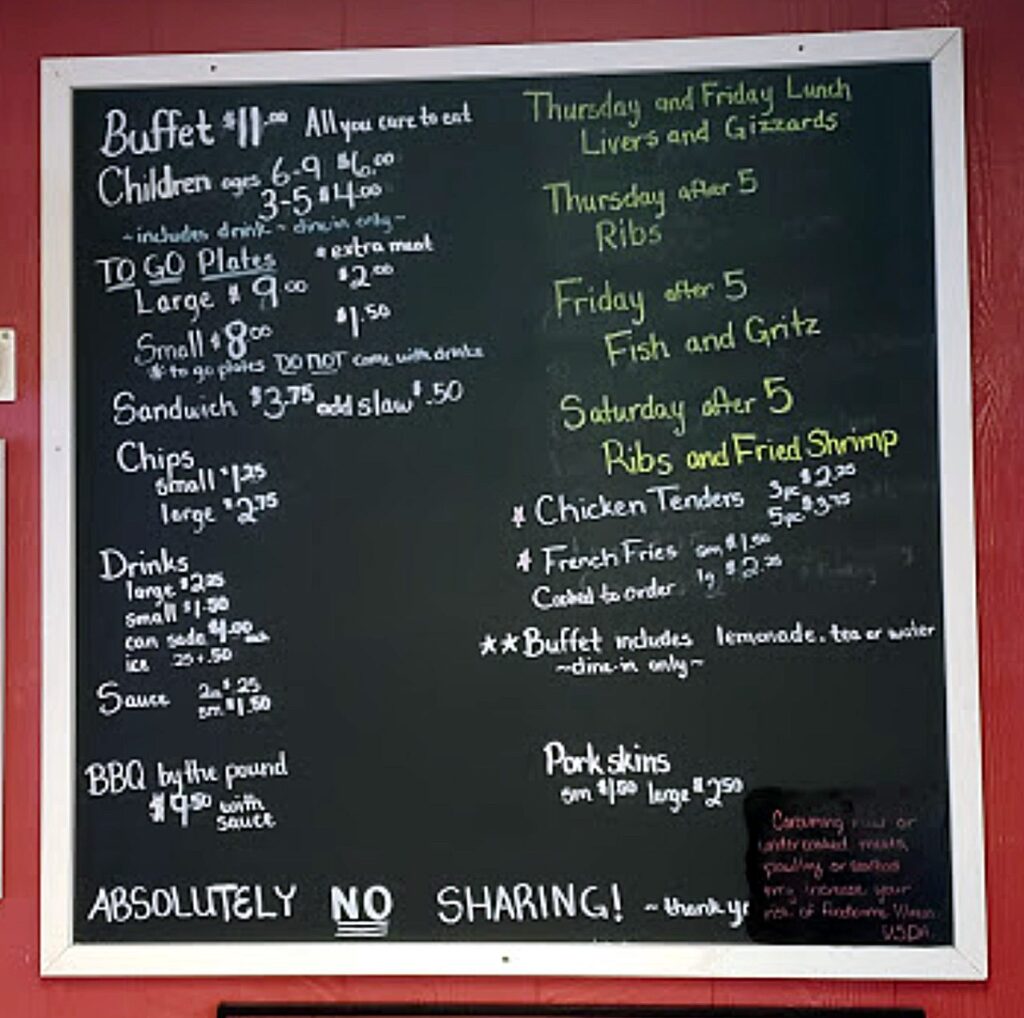 Buffet $11.00 All you care to eat
Children ages 6-9 $6.00
3-5 $4.00
~includes drink ~ dine in only~
TO GO Plates *extra meat
Large $9.00 $2.00
Small $8.00 $1.50
* to go plates DO NOT come with drinks
Sandwich $3.75 add slaw $.50
Chips
small $1.25
large $2.75
Drinks
large $2.25
small $1.50
can soda $1.00 each
ice .50
Sauce $.25
sm $1.50
BBQ by the pound
$9.50 with
sauce
Thursday and Friday Lunch
Livers and Gizzards
Thursday after 5
Ribs
Friday after 5
Fish and Gritz
Saturday after 5
Ribs and Fried Shrimp
* Chicken Tenders 3pc $2.25
5pc $3.75
* French Fries sm $1.50
Cooked to order lg $2.25
**Buffet includes lemonade, tea or water
~dine-in only~
Pork skins
sm $1.50 large $2.50
ABSOLUTELY NO SHARING! ~thank y
Consuming raw or
undercooked meats,
poultry or seafood
may increase your
risk of foodborne illness
USDA